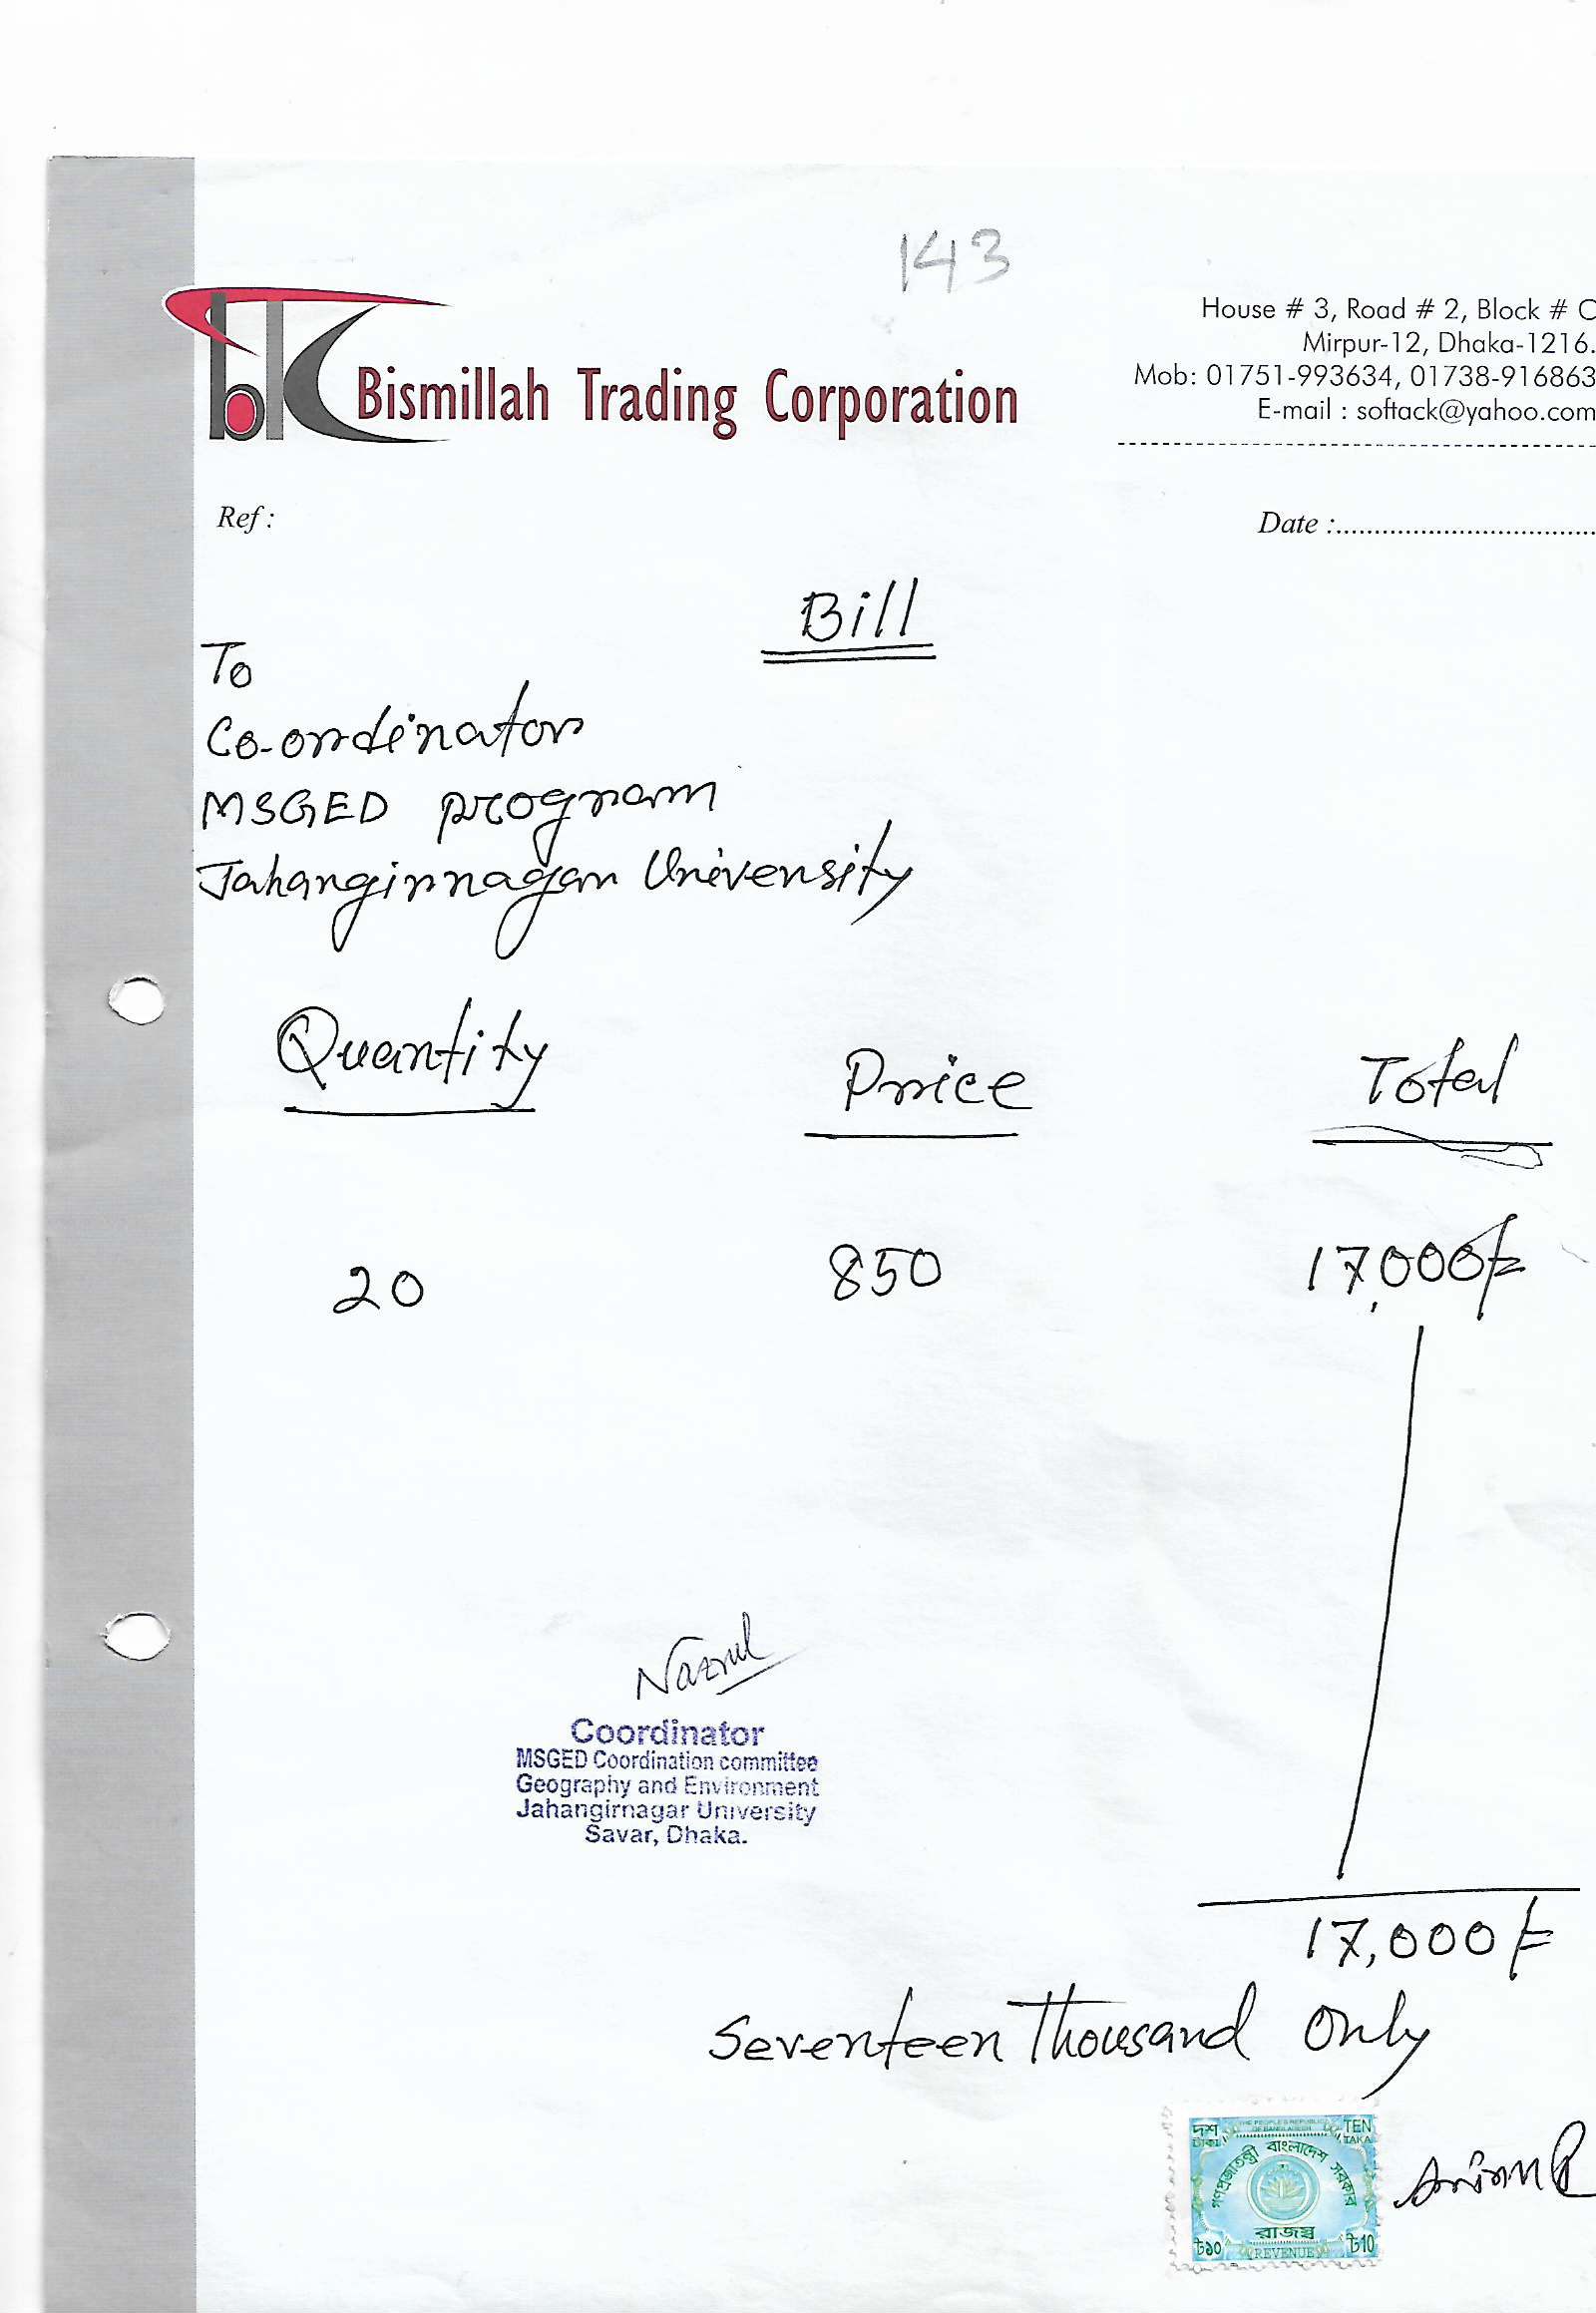 143
btc Bismillah Trading Corporation
House # 3, Road # 2, Block # C
Mirpur-12, Dhaka-1216.
Mob: 01751-993634, 01738-916863
E-mail : softack@yahoo.com
Ref :
Date :
Bill
To
Co-ordinator
MSGED program
Jahangirnagar University
Quantity Price Total
20 850 17,000/=
Nazrul
Coordinator
MSGED Coordination committee
Geography and Environment
Jahangirnagar University
Savar, Dhaka.
17,000/=
Seventeen Thousand Only
দশ টাকা THE PEOPLE'S REPUBLIC OF BANGLADESH TEN TAKA
গণপ্রজাতন্ত্রী বাংলাদেশ সরকার
রাজস্ব
৳১০ REVENUE ৳10